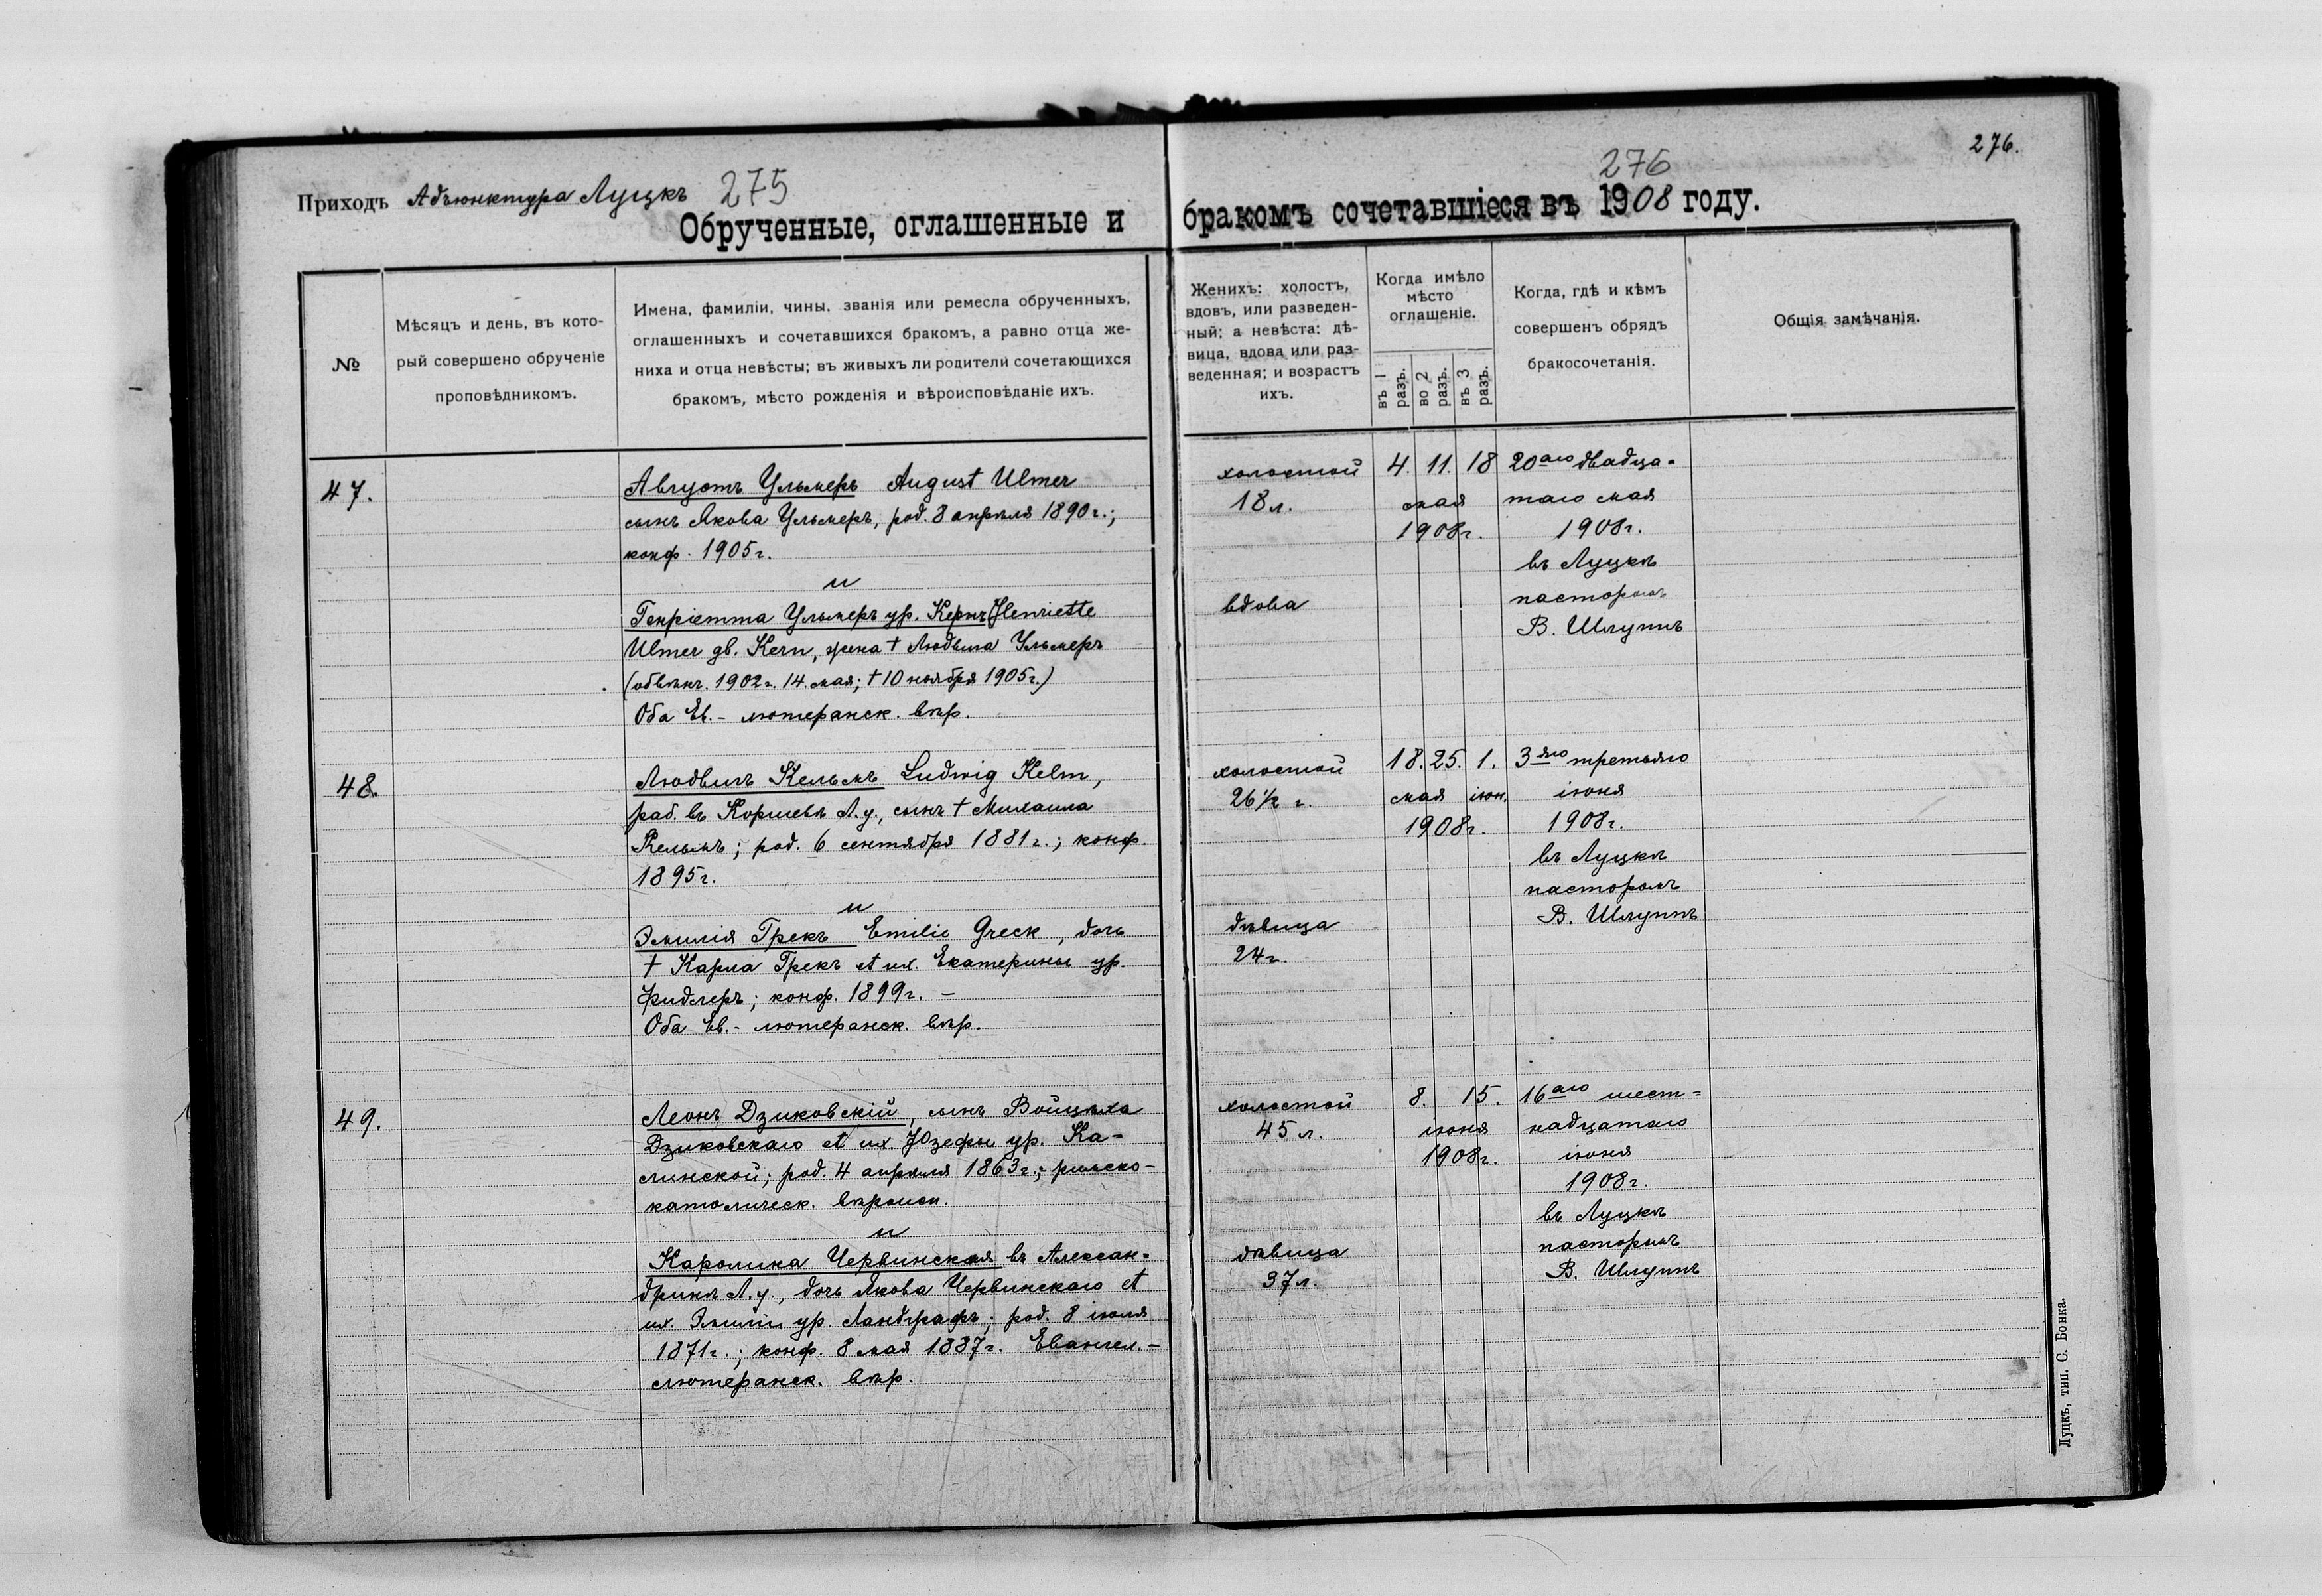 276.
276
Приходъ Адъюнктура Луцкъ 275
Обрученные, оглашенные и бракомъ сочетавшіеся въ 1908 году.
№
Мѣсяцъ и день, въ кото-
рый совершено обрученіе
проповѣдникомъ.
Имена, фамиліи, чины, званія или ремесла обрученныхъ,
оглашенныхъ и сочетавшихся бракомъ, а равно отца же-
ниха и отца невѣсты; въ живыхъ ли родители сочетающихся
бракомъ, мѣсто рожденія и вѣроисповѣданіе ихъ.
Женихъ: холостъ,
вдовъ, или разведен-
ный; а невѣста: дѣ-
вица, вдова или раз-
веденная; и возрастъ
ихъ.
Когда имѣло
мѣсто
оглашеніе.
въ 1 разъ.
во 2 разъ.
въ 3 разъ.
Когда, гдѣ и кѣмъ
совершенъ обрядъ
бракосочетанія.
Общія замѣчанія.
47.
Августъ Ульмеръ August Ulmer
сынъ Якова Ульмеръ, род. 8 апрѣля 1890 г.;
конф. 1905 г.
и
Генріетта Ульмеръ ур. Кернъ Henriette
Ulmer gb. Kern, жена † Людвига Ульмеръ
(обвѣнч. 1902 г. 14 мая; † 10 ноября 1905 г.)
Оба Ев.- лютеранск. вѣр.
холостой
18 л.
вдова
4. 11. 18
мая
1908 г.
20аго двадца-
таго мая
1908 г.
въ Луцкѣ
пасторомъ
В. Шлуппъ
48.
Людвигъ Кельмъ Ludwig Kelm,
раб. въ Коршевѣ Л. у., сынъ † Михаила
Кельмъ; род. 6 сентября 1881 г.; конф.
1895 г.
и
Эмилія Грекъ Emilie Greck, дочь
† Карла Грекъ et ux. Екатерины ур.
Фидлеръ; конф. 1899 г. –
Оба Ев.- лютеранск. вѣр.
холостой
26 1/2 г.
дѣвица
24 г.
18. 25. 1.
мая іюн.
1908 г.
3яго третьяго
іюня
1908 г.
въ Луцкѣ
пасторомъ
В. Шлуппъ
49.
Леонъ Дзиковскій, сынъ Войцѣха
Дзиковскаго et ux. Юзефы ур. Ка-
линской; род. 4 апрѣля 1863 г.; римско-
католическ. вѣроисп.
и
Каролина Червинская въ Алексан-
дринѣ Л. у., дочь Якова Червинскаго et
ux. Эмиліи ур. Ландграфъ; род. 8 іюля
1871 г.; конф. 8 мая 1887 г. Евангел.-
лютеранск. вѣр.
холостой
45 л.
дѣвица
37 л.
8. 15.
іюня
1908 г.
16аго шест=
надцатаго
іюня
1908 г.
въ Луцкѣ
пасторомъ
В. Шлуппъ
Луцкъ, тип. С. Бонка.